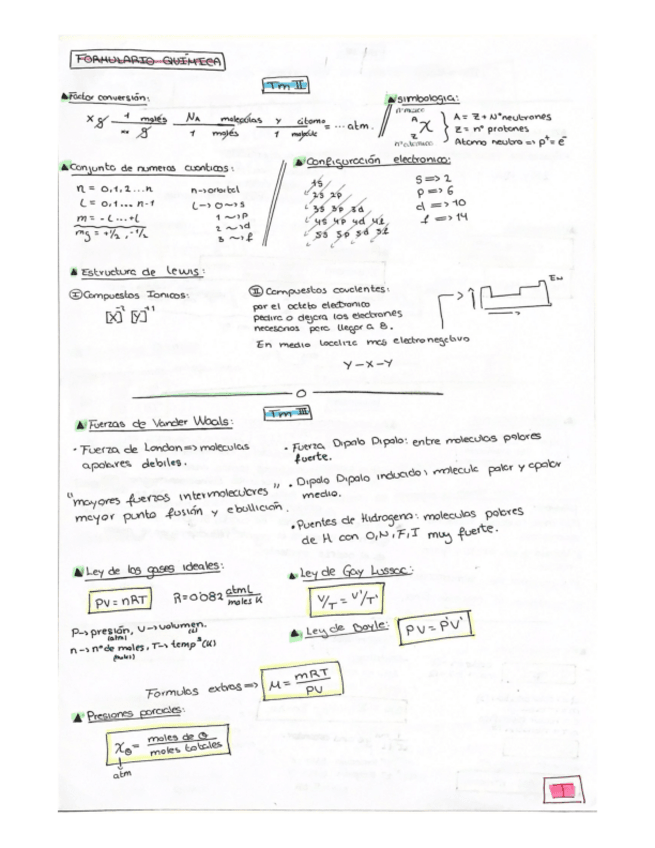 FORMULARIO QUÍMICA
Tm II
▲Factor conversión:
x g · 1 moles / xx g · NA moleculas / 1 moles · y átomo / 1 molecule = ... atm.
▲Simbología:
nº másico
A
Z X
nº atómico
A = Z + Nº neutrones
Z = nº protones
Atomo neutro => p⁺ = e⁻
▲Conjunto de numeros cuanticos:
n = 0,1,2...n
L = 0,1... n-1
m = -L...+L
mg = +1/2, -1/2
n→orbital
L→ 0~>s
1 ~>p
2 ~>d
3 ~>f
▲Configuración electronica:
1s
2s 2p
3s 3p 3d
4s 4p 4d 4f
5s 5p 5d 5f
S => 2
p => 6
d => 10
f => 14
▲ Estructura de Lewis:
Ⓘ Compuestos Ionicos:
[X]⁻¹ [Y]⁺¹
Ⓘⓘ Compuestos covalentes:
por el octeto electronico
pedira o dejara los electrones
necesarios para llegar a 8.
En medio localiza mas electronegativo
Y – X – Y
EN
Tm III
▲ Fuerzas de Vander Waals:
· Fuerza de London => moleculas
apolares debiles.
"mayores fuerzas intermoleculares"
mayor punto fusión y ebullición.
· Fuerza Dipolo Dipolo: entre moleculas polares
fuerte.
· Dipolo Dipolo inducido: molecula polar y apolar
medio.
· Puentes de Hidrogeno: moleculas polares
de H con O,N,F,I muy fuerte.
▲ Ley de los gases ideales:
PV = nRT
R=0'082 atmL / moles K
P→presión, V→volumen.
(atm) (L)
n→nº de moles, T→tempª (K)
(moles)
▲ Ley de Gay Lussac:
V/T = V'/T'
▲ Ley de Boyle:
PV = P'V'
Formulas extras => M = mRT / PV
▲ Presiones parciales:
χ = moles de / moles totales
atm
1